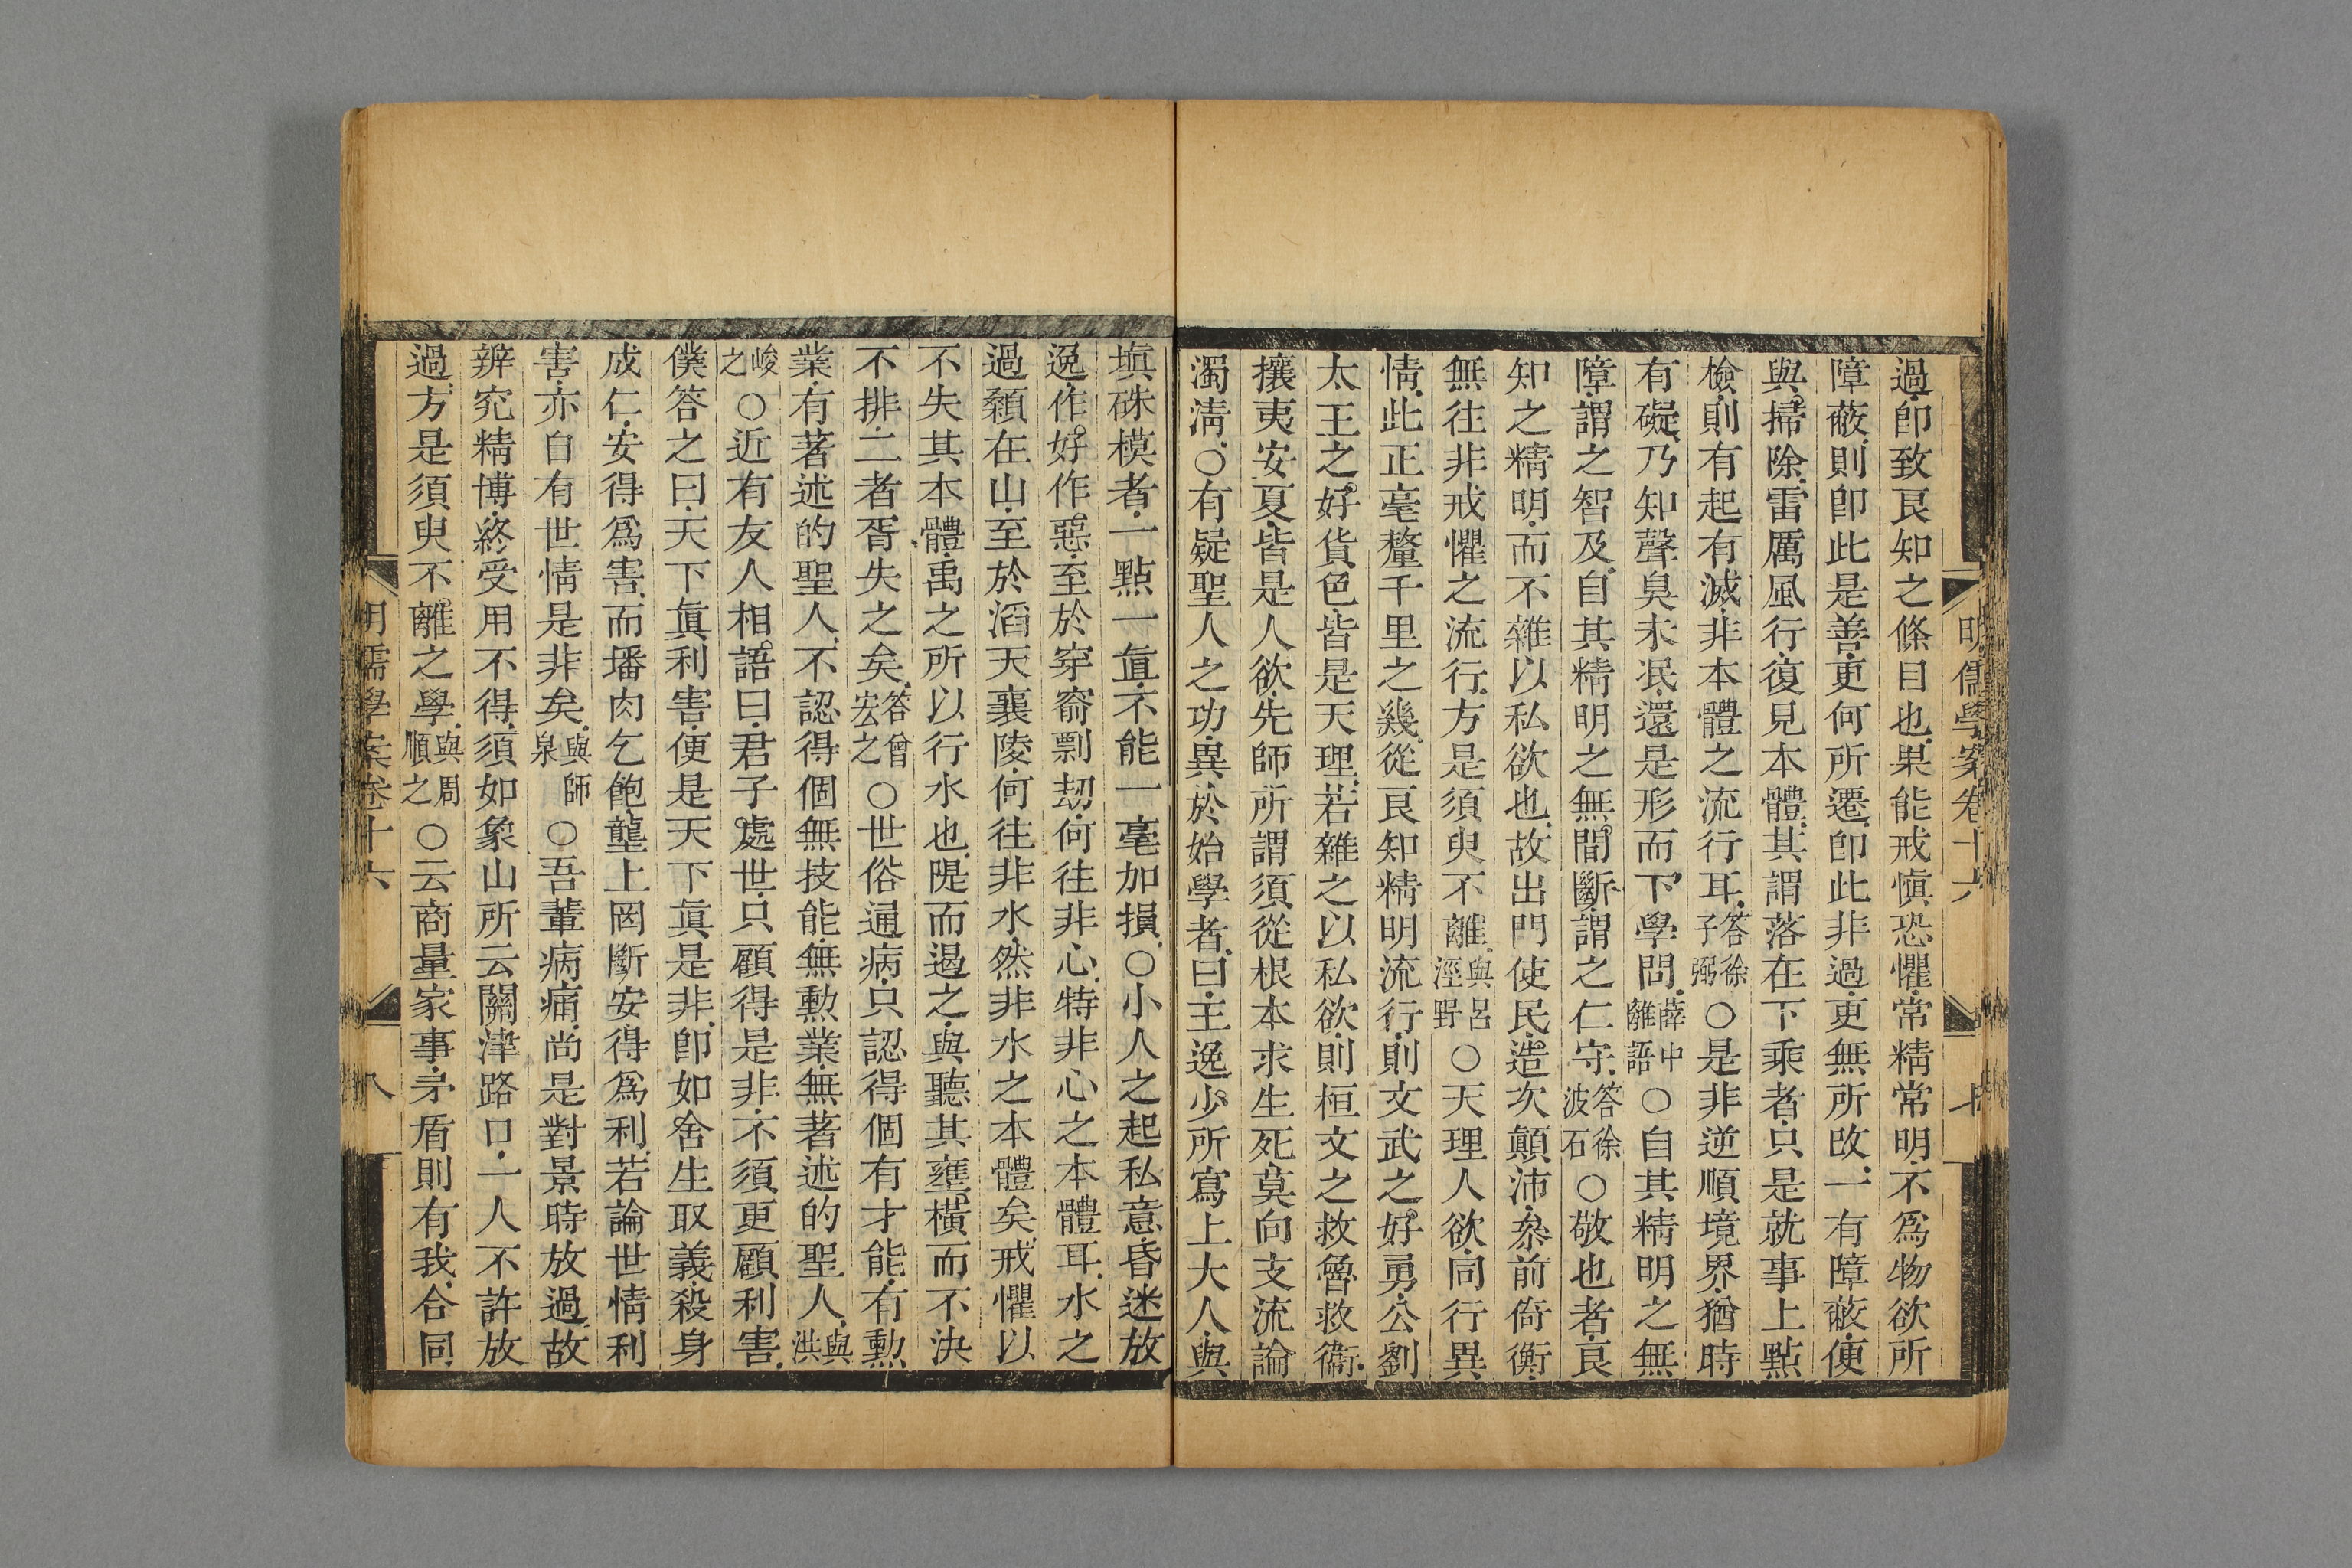 明儒學案卷十六 七
過即致良知之條目也果能戒愼恐懼常精常明不爲物欲所
障蔽則即此是善更何所遷即此非過更無所改一有障蔽便
與掃除雷厲風行復見本體其謂落在下乘者只是就事上點
檢則有起有滅非本體之流行耳答徐子弼○是非逆順境界猶時
有礙乃知聲臭未泯還是形而下學問薛中離語○自其精明之無
障謂之智及自其精明之無間斷謂之仁守答徐波石○敬也者良
知之精明而不雜以私欲也故出門使民造次顚沛參前倚衡
無往非戒懼之流行方是須臾不離與呂涇野○天理人欲同行異
情此正毫釐千里之幾從良知精明流行則文武之好勇公劉
太王之好貨色皆是天理若雜之以私欲則桓文之救魯救衞
攘夷安夏皆是人欲先師所謂須從根本求生死莫向支流論
濁淸○有疑聖人之功異於始學者曰王逸少所寫上大人與
塡硃模者一點一直不能一毫加損○小人之起私意昏迷放
逸作好作惡至於穿窬剽劫何往非心特非心之本體耳水之
過顙在山至於滔天襄陵何往非水然非水之本體矣戒懼以
不失其本體禹之所以行水也隄而遏之與聽其壅橫而不決
不排二者胥失之矣答曾宏之○世俗通病只認得個有才能有勳
業有著述的聖人不認得個無技能無勳業無著述的聖人與洪
峻之○近有友人相語曰君子處世只顧得是非不須更顧利害
僕答之曰天下眞利害便是天下眞是非即如舍生取義殺身
成仁安得爲害而墦肉乞飽壟上罔斷安得爲利若論世情利
害亦自有世情是非矣與師泉○吾輩病痛尚是對景時放過故
辨究精博終受用不得須如象山所云關津路口一人不許放
過方是須臾不離之學與周順之○云商量家事矛盾則有我合同
明儒學案卷十六 八